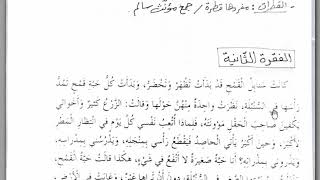 - القطرات : مفردها قطرة / جمع مؤنث سالم
الفقرة الثانية
كَانَتْ سَنَابِلُ الْقَمْحِ قَدْ بَدَأَتْ تَظْهَرُ وَتَخْضَرُّ، وَبَدَأَتْ كُلُّ حَبَّةِ قَمْحٍ تَمُدُّ
رَأْسَهَا فِي السُّنْبُلَةِ، نَظَرَتْ وَاحِدَةٌ مِنْهُنَّ حَوْلَهَا وَقَالَتْ: الزَّرْعُ كَثِيرٌ وَأَخَوَاتِي
يَكْفِينَ صَاحِبَ الْحَقْلِ مَؤُونَتَهُ، فَلِمَاذَا أُتْعِبُ نَفْسِي كُلَّ يَوْمٍ فِي انْتِظَارِ الْمَطَرِ
وَحِينَ أَكْبُرُ يَأْتِي الْحَاصِدُ فَيَقْطَعُ رَأْسِي بِمِنْجَلِهِ، وَيَدْرُسُنِي بِمِدْرَاسِهِ،
وَيَذْرُونِي بِمِذْرَاتِهِ؟ أَنَا حَبَّةٌ صَغِيرَةٌ لَا أَنْفَعُ فِي شَيْءٍ، هَكَذَا قَالَتْ حَبَّةُ الْقَمْحِ،